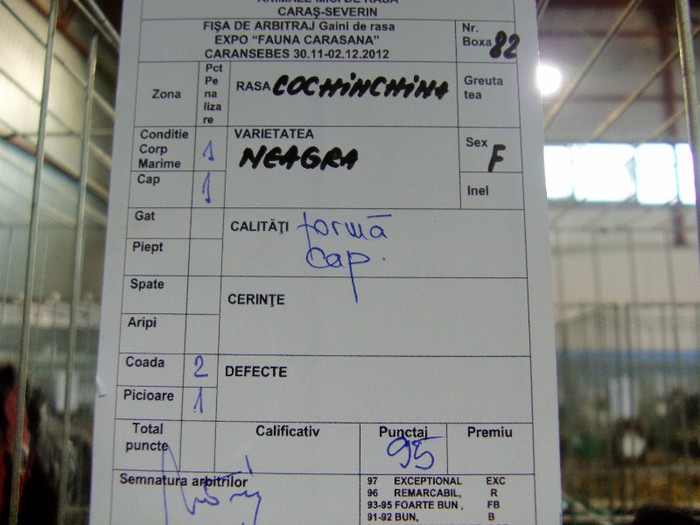 ANIMALE MICI DE RASA
CARAŞ-SEVERIN
FIŞA DE ARBITRAJ Gaini de rasa
EXPO "FAUNA CARASANA"
CARANSEBES 30.11-02.12.2012
Nr.
Boxa 82
Zona
Pct
Pe
na
liza
re
RASA COCHINCHINA
Greuta
tea
Conditie
Corp
Marime 1
VARIETATEA
NEAGRA
Sex F
Cap 1
Inel
Gat
CALITĂŢI formă
cap.
Piept
Spate
CERINŢE
Aripi
Coada 2
DEFECTE
Picioare 1
Total
puncte
Calificativ
Punctaj
95
Premiu
Semnatura arbitrilor
97 EXCEPTIONAL EXC
96 REMARCABIL, R
93-95 FOARTE BUN , FB
91-92 BUN, B